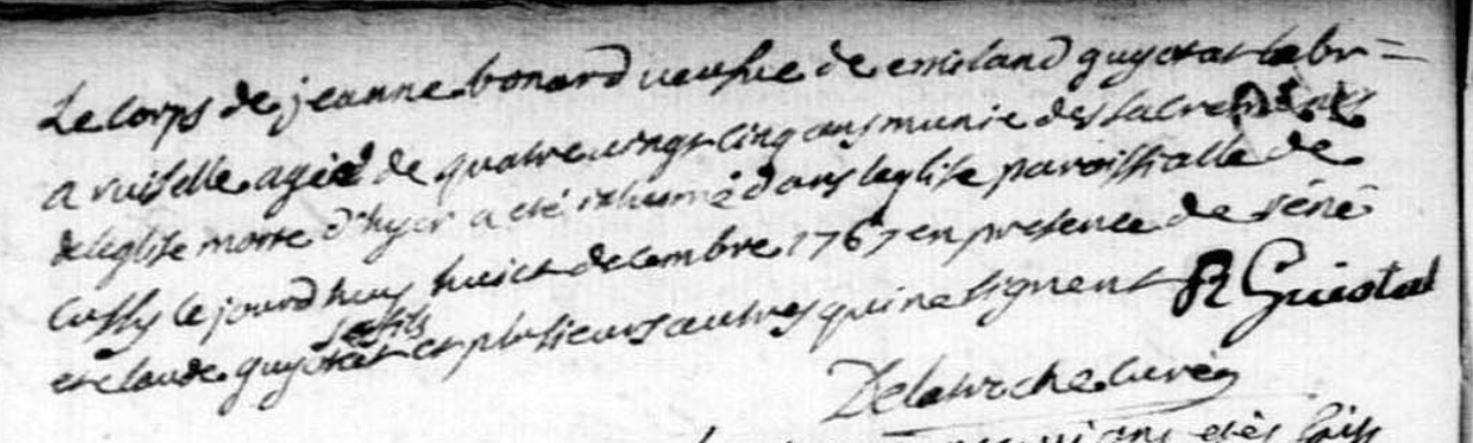 Le corps de jeanne bonard veufve de emiland guyotat labr=
a ruiselle agée de quatrevingt cinq ans munie des sacrements
de leglise morte d'hyer a été inhumé dans leglise paroissialle de
Cussy ce jourd huy huict decembre 1767 en presence de réné
et claude guyotat ses fils et plusieurs autres qui ne signent R Guiotat
Delaroche curé
ans